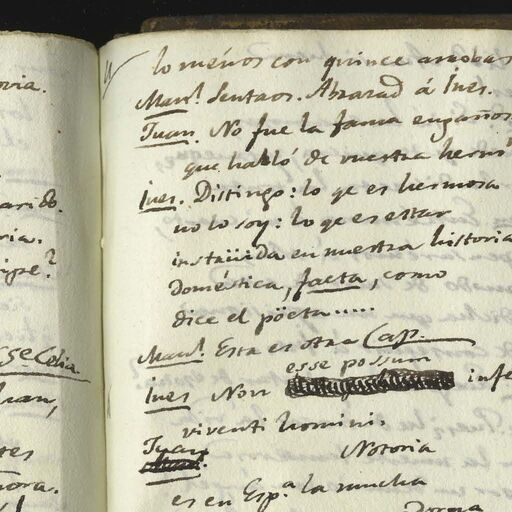 oria.
arido.
ria.
sse Celia
lo menos con quince arrobas
Man.l Sentaos. Abrazad á Ines.
Juan. No fue la fama engañosa
que habló de vuestra herm
Ines. Distingo: lo qe es hermosa
no lo soy: lo qe es estar
instrüida en nuestra historia
Doméstica, facta, como
dice el pöeta.....
Man.l Esta es otra (ap.
esse possum
Ines Non infe
viventi homini.
Juan
Notoria
es en Esp.a la mucha